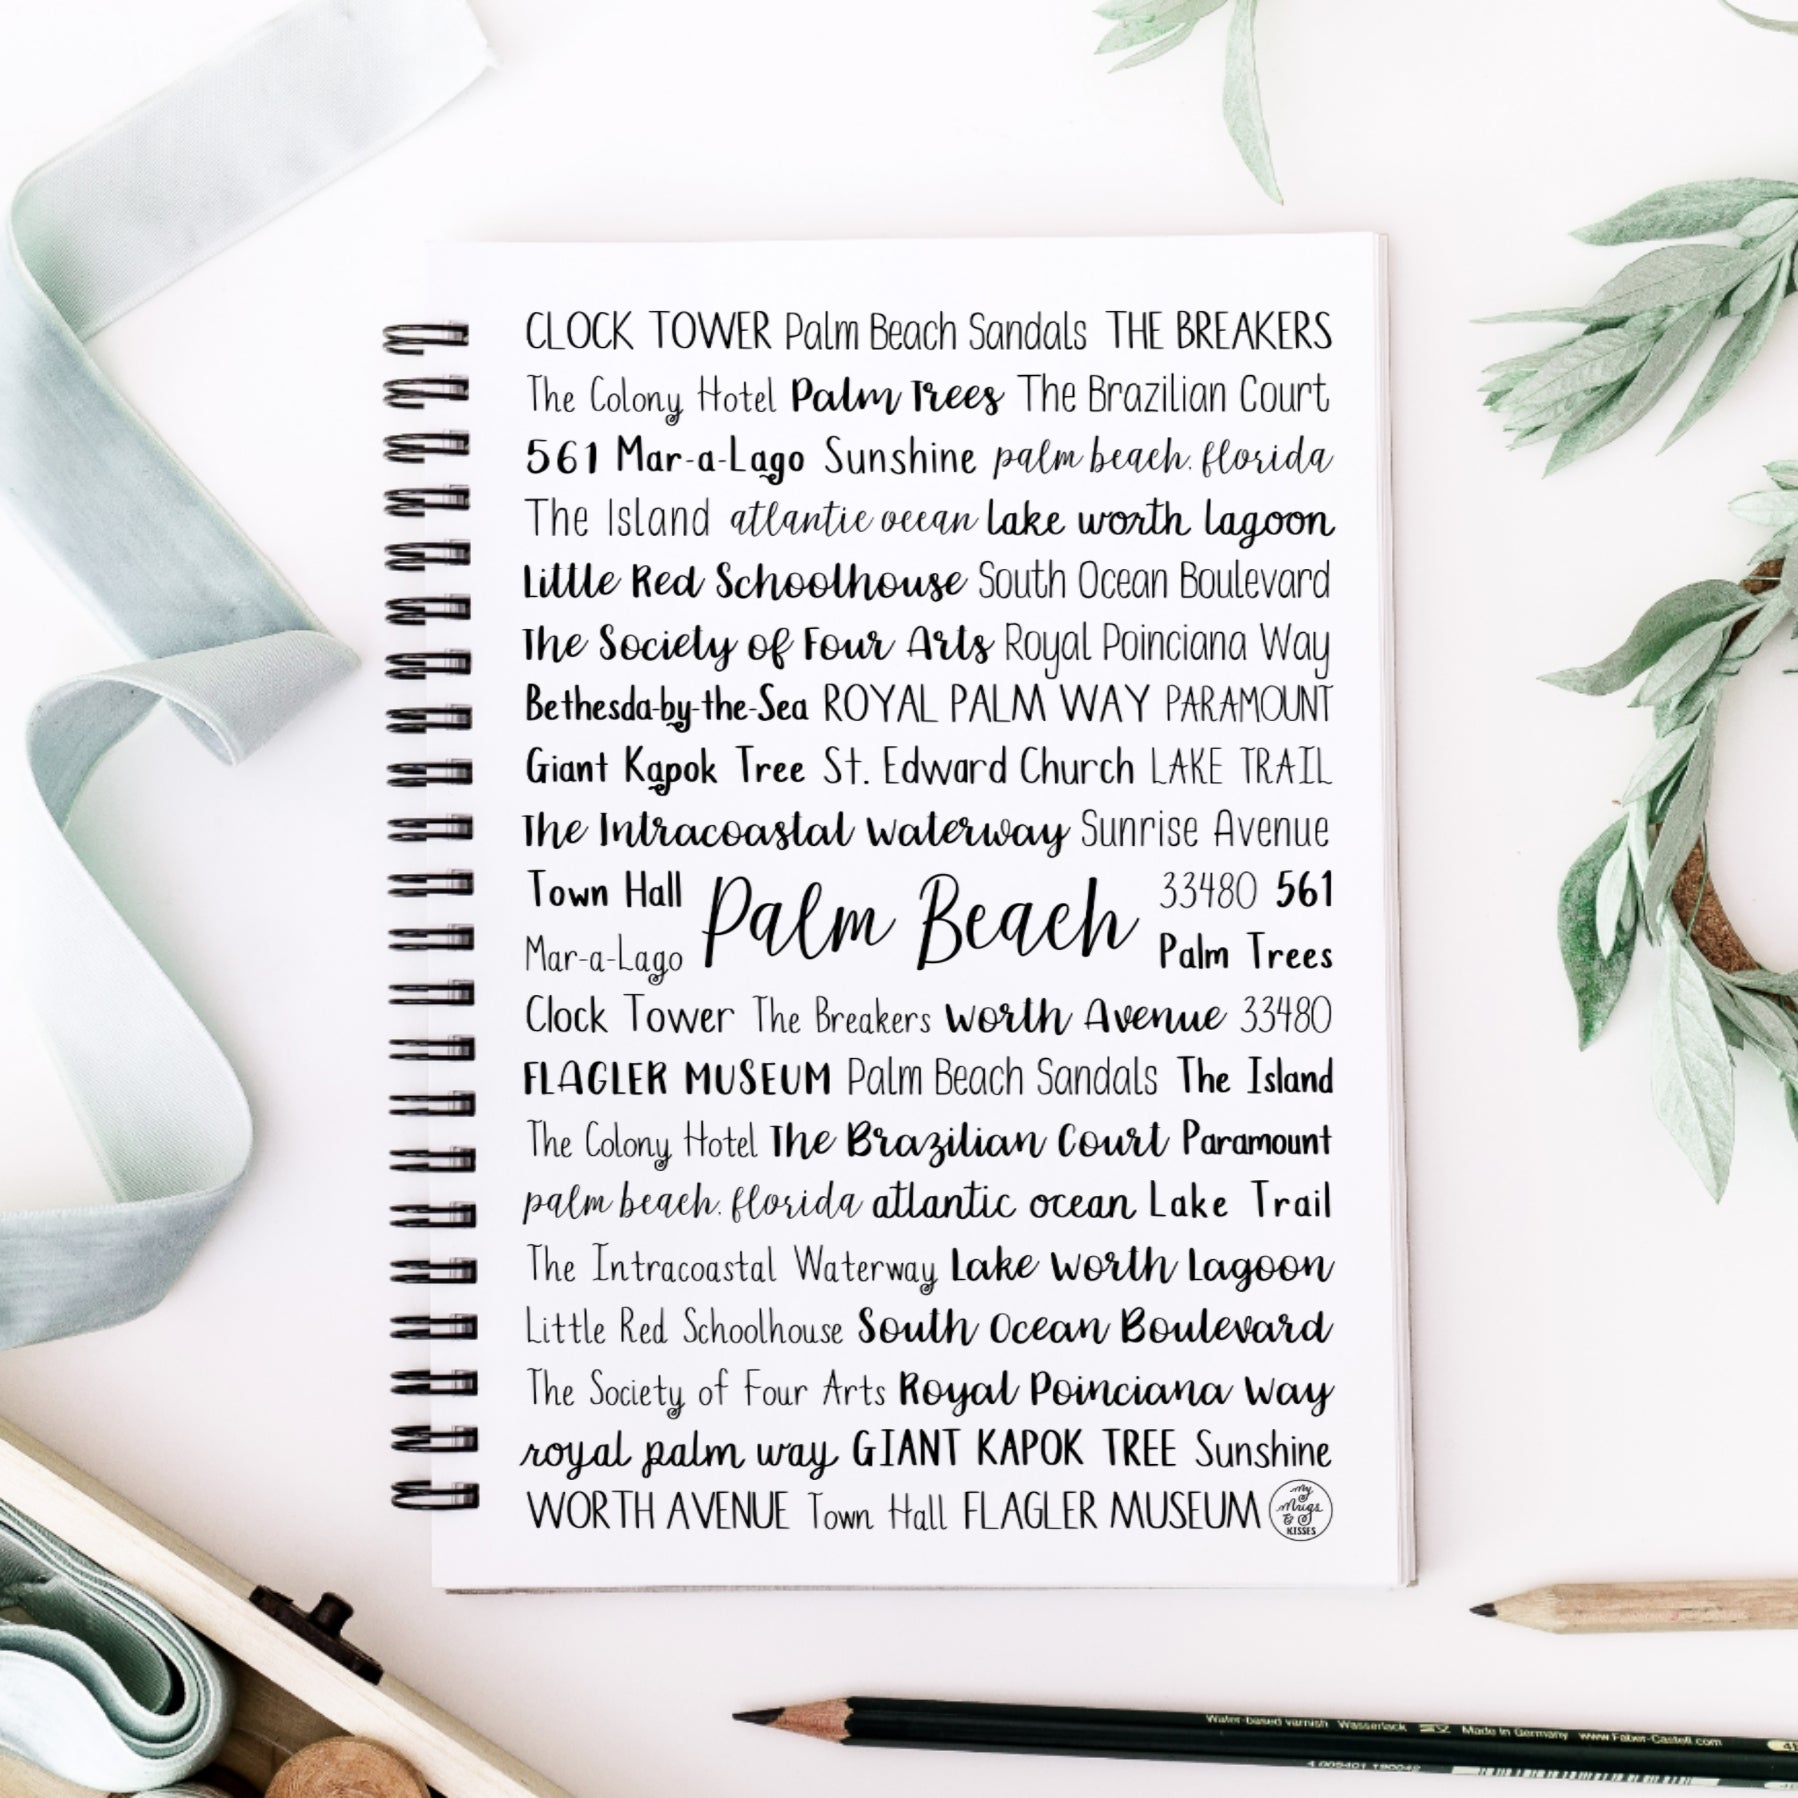 CLOCK TOWER Palm Beach Sandals THE BREAKERS
The Colony Hotel Palm Trees The Brazilian Court
561 Mar-a-Lago Sunshine palm beach, florida
The Island atlantic ocean lake worth lagoon
Little Red Schoolhouse South Ocean Boulevard
The Society of Four Arts Royal Poinciana Way
Bethesda-by-the-Sea ROYAL PALM WAY PARAMOUNT
Giant Kapok Tree St. Edward Church LAKE TRAIL
The Intracoastal Waterway Sunrise Avenue
Town Hall
Mar-a-Lago
Palm Beach
33480 561
Palm Trees
Clock Tower The Breakers Worth Avenue 33480
FLAGLER MUSEUM Palm Beach Sandals The Island
The Colony Hotel The Brazilian Court Paramount
palm beach, florida atlantic ocean Lake Trail
The Intracoastal Waterway Lake Worth Lagoon
Little Red Schoolhouse South Ocean Boulevard
The Society of Four Arts Royal Poinciana Way
royal palm way GIANT KAPOK TREE Sunshine
WORTH AVENUE Town Hall FLAGLER MUSEUM
My
Mugs
&
KISSES
Water-based varnish Wasserlack Made in Germany www.Faber-Castell.com